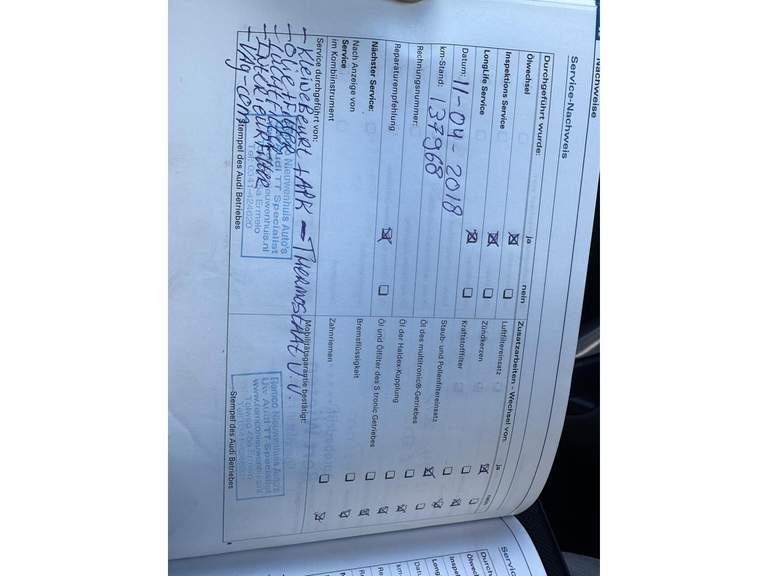 Nachweise
Service-Nachweis
Durchgeführt wurde:
ja
nein
Ölwechsel
Inspektions Service
LongLife Service
Datum: 11-04-2018
km-Stand: 137968
Rechnungsnummer:
Reparaturempfehlung
Nächster Service:
Nach Anzeige von
Service
im Kombiinstrument
Service durchgeführt von:
Stempel des Audi Betriebes
Zusatzarbeiten - Wechsel von:
ja
nein
Luftfiltereinsatz
Zündkerzen
Kraftstofffilter
Staub- und Pollenfiltereinsatz
Öl des multitronic®-Getriebes
Öl der Haldex-Kupplung
Öl und Ölfilter des S tronic Getriebes
Bremsflüssigkeit
Zahnriemen
Mobilitätsgarantie bestätigt:
Stempel des Audi Betriebes
+ Kleine Beurt + APK - Thermostaat V.V.
+ Olie + Filter
+ Interieurfilter
+ Vag-com
Nieuwenhuis Auto's
Audi TT Specialist
Ermelo
Tel: 0341-424620
Remco Nieuwenhuis Auto's
Uw Audi TT Specialist
Service
Durch
Ölwech
Inspe
Long